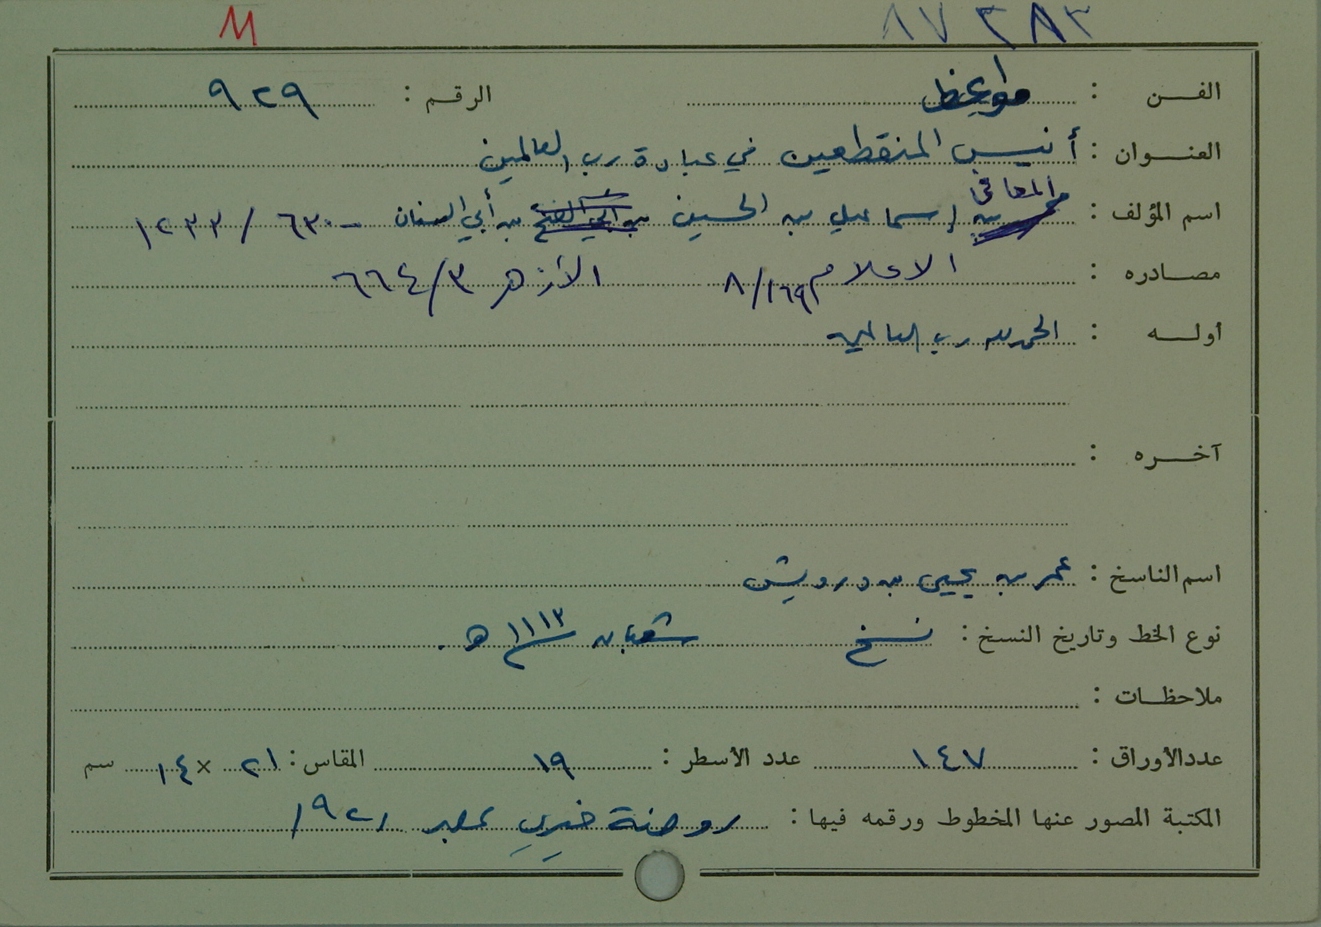 M ٨٧٢٨٣
الفن : مواعظ الرقم : ٩٢٩
العنوان : أنيس المنقطعين في عبادة رب العالمين
المعافى
اسم المؤلف : بن إسماعيل بن الحسين بن أبي الفتح بن أبي السنان - ٦٣٠ / ١٢٣٣
مصادره : الاعلام ٨/١٦٩ الأزهر ٣/٦٦٤
أوله : الحمد لله رب العالمين
آخره :
اسم الناسخ : عمر بن يحيى بن درويش
نوع الخط وتاريخ النسخ : نسخ شعبان ١١١٣ هـ .
ملاحظات :
عدد الأوراق : ١٤٧ عدد الأسطر : ١٩ المقاس : ٢١ × ١٤ سم
المكتبة المصور عنها المخطوط ورقمه فيها : روضة خيري بمصر